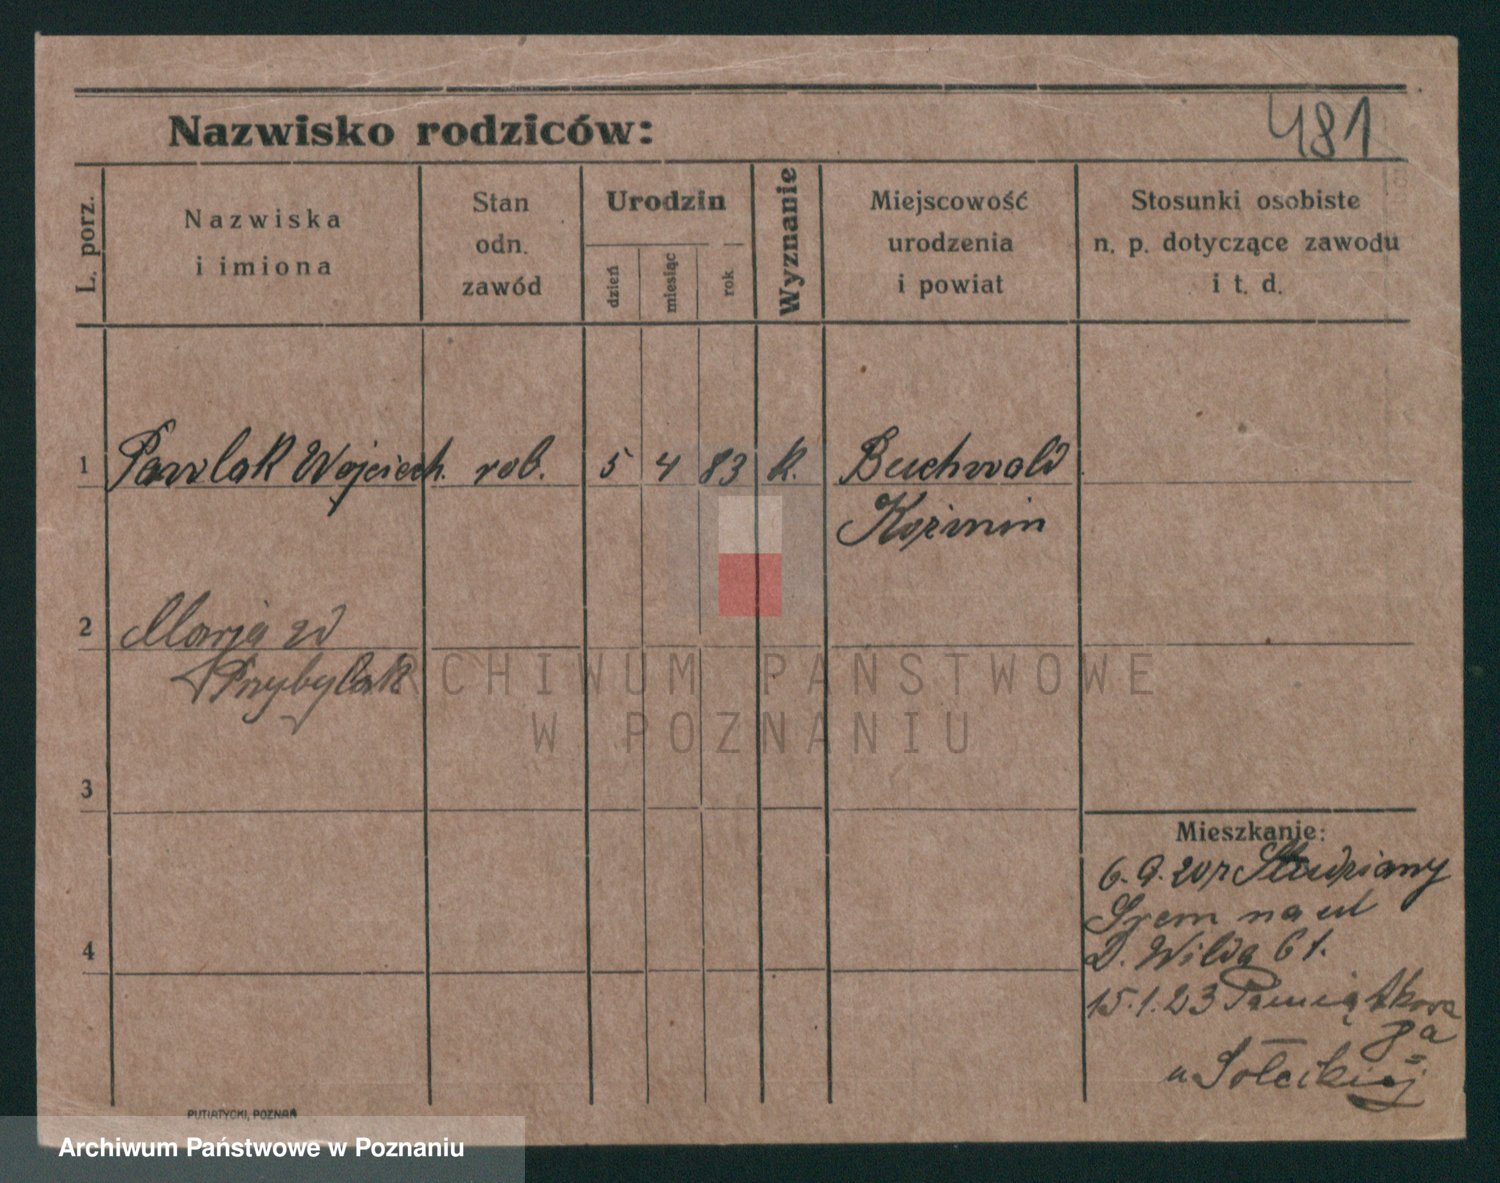 481
Nazwisko rodziców:
L. porz.
Nazwiska
i imiona
Stan
odn.
zawód
Urodzin
dzień
miesiąc
rok
Wyznanie
Miejscowość
urodzenia
i powiat
Stosunki osobiste
n. p. dotyczące zawodu
i t. d.
1 Pawlak Wojciech. rob. 5 4 83 k. Buchwald
Koźmin
2 Marja zd
Przybylak
3
4
Mieszkanie:
6. 9. 20 z Studziany
Śrem na ul
D. Wilda 61.
15.1.23 Pamiątkowa
8a
u Soleckiej
ARCHIWUM PAŃSTWOWE
W POZNANIU
PUTIATYCKI, POZNAŃ
Archiwum Państwowe w Poznaniu